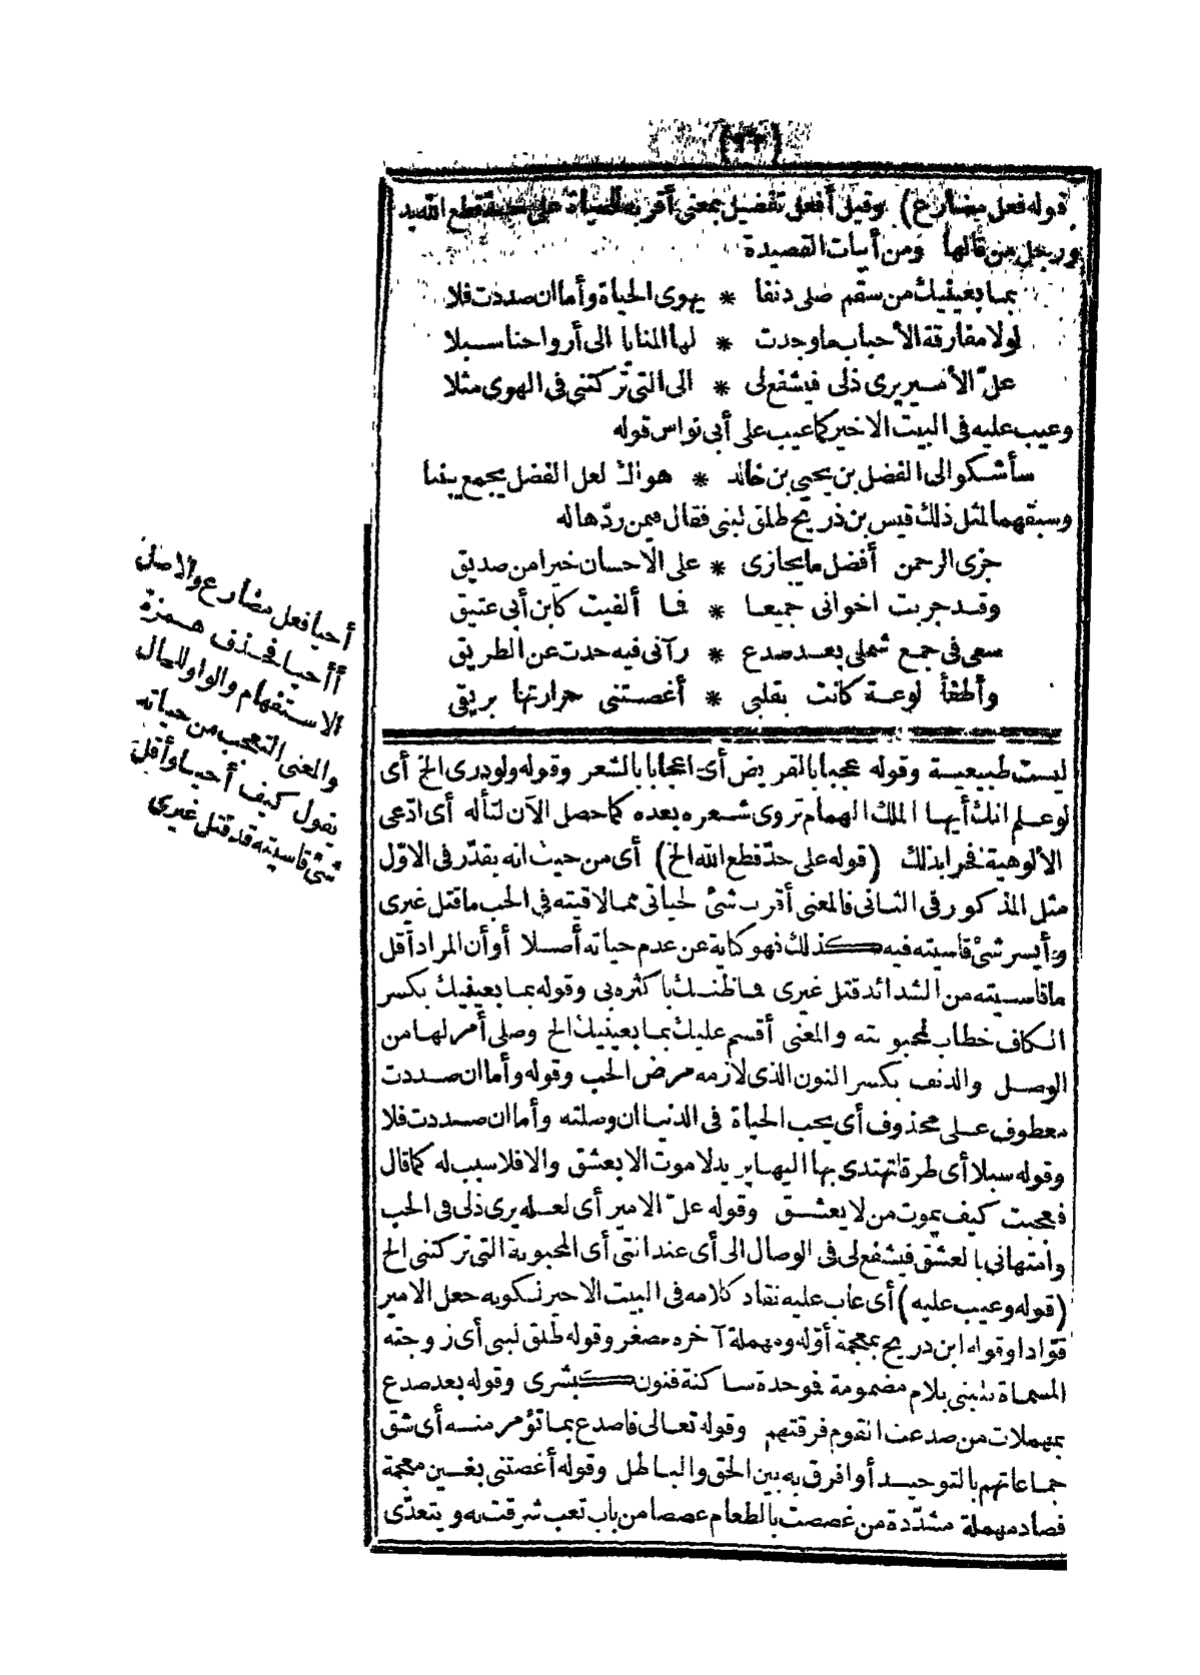 (٢٢)
قوله فعل مضارع) وقيل أفعل تفضيل بمعنى أقرب للحياة على حد قطع الله يد
ورجل من قالها ومن أبيات القصيدة
بما بعينيك من سقم صلى دنفا * يهوى الحياة وأما ان صددت فلا
لولا مفارقة الأحباب ما وجدت * لها المنايا الى أرواحنا سبلا
علّ الأمير يرى ذلى فيشفع لى * الى التى تركتنى فى الهوى مثلا
وعيب عليه فى البيت الاخير كما عيب على أبى نواس قوله
سأشكو الى الفضل بن يحيى بن خالد * هواك لعل الفضل يجمع بيننا
وسبقهما لمثل ذلك قيس بن ذريح طلق لبنى فقال فيمن ردّها له
جزى الرحمن أفضل ما يجازى * على الاحسان خيرا من صديق
وقد جربت اخوانى جميعا * فما ألفيت كابن أبى عتيق
سعى فى جمع شملى بعد صدع * رآنى فيه حدت عن الطريق
وأطفأ لوعة كانت بقلبى * أغصتنى حرارتها بريقى
أحيا فعل مضارع والاصل
أأحيا فحذف همزة
الاستفهام والواو للحال
والمعنى التعجب من حياته
يقول كيف أحيا وأقل
شئ قاسيته قد قتل غيرى
ليست طبيعية وقوله عجبا بالقريض أى اعجابا بالشعر وقوله ولو درى الخ أى
لو علم انك أيها الملك الهمام تروى شعره بعده كما حصل الآن لتأله أى ادّعى
الألوهية فخرا بذلك (قوله على حدّ قطع الله الخ) أى من حيث انه يقدّر فى الاوّل
مثل المذكور فى الثانى فالمعنى أقرب شئ لحياتى مما لاقيته فى الحب ما قتل غيرى
وأيسر شئ قاسيته فيه كذلك فهو كناية عن عدم حياته أصلا أو أن المراد أقل
ما قاسيته من الشدائد قتل غيرى فما ظنك باكثره بى وقوله بما بعينيك بكسر
الكاف خطاب لمحبوبته والمعنى أقسم عليك بما بعينيك الخ وصلى أمر لها من
الوصل والدنف بكسر النون الذى لازمه مرض الحب وقوله وأما ان صددت
معطوف على محذوف أى يحب الحياة فى الدنيا ان وصلته وأما ان صددت فلا
وقوله سبلا أى طرقا تهتدى بها اليها يريد لا موت الا بعشق والا فلا سبب له كما قال
فعجبت كيف يموت من لا يعشق وقوله علّ الامير أى لعله يرى ذلى فى الحب
وامتهانى بالعشق فيشفع لى فى الوصال الى أى عند التى أى المحبوبة التى تركتنى الخ
(قوله وعيب عليه) أى عاب عليه نقاد كلامه فى البيت الاخير لكونه جعل الامير
قوّادا وقوله ابن دريح بمعجمة أوّله ومهملة آخره مصغر وقوله طلق لبنى أى زوجته
المسماة بلبنى بلام مضمومة فموحدة ساكنة فنون كبشرى وقوله بعد صدع
بمهملات من صدعت القوم فرقتهم وقوله تعالى فاصدع بما تؤمر منه أى شق
جماعاتهم بالتوحيد أو افرق به بين الحق والباطل وقوله أغصتنى بغين معجمة
فصاد مهملة مشدّدة من غصصت بالطعام غصصا من باب تعب شرقت به ويتعدّى